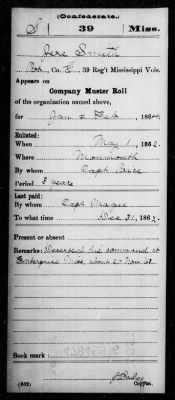 (Confederate.)
S 39 Miss.
Jere Smith
Co. E, 39 Reg't Mississippi Vols.
Appears on
Company Muster Roll
of the organization named above,
for Jan & Feb, 186
Enlisted:
When May 1, 1862.
Where Monmouth
By whom Capt
Period 3 years
Last paid:
By whom Capt Magee
To what time Dec 31, 186
Present or absent
Remarks: Deserted his command at
Enterprise Miss about 20 Nov 63.
Book mark:
(642)
Copyist.